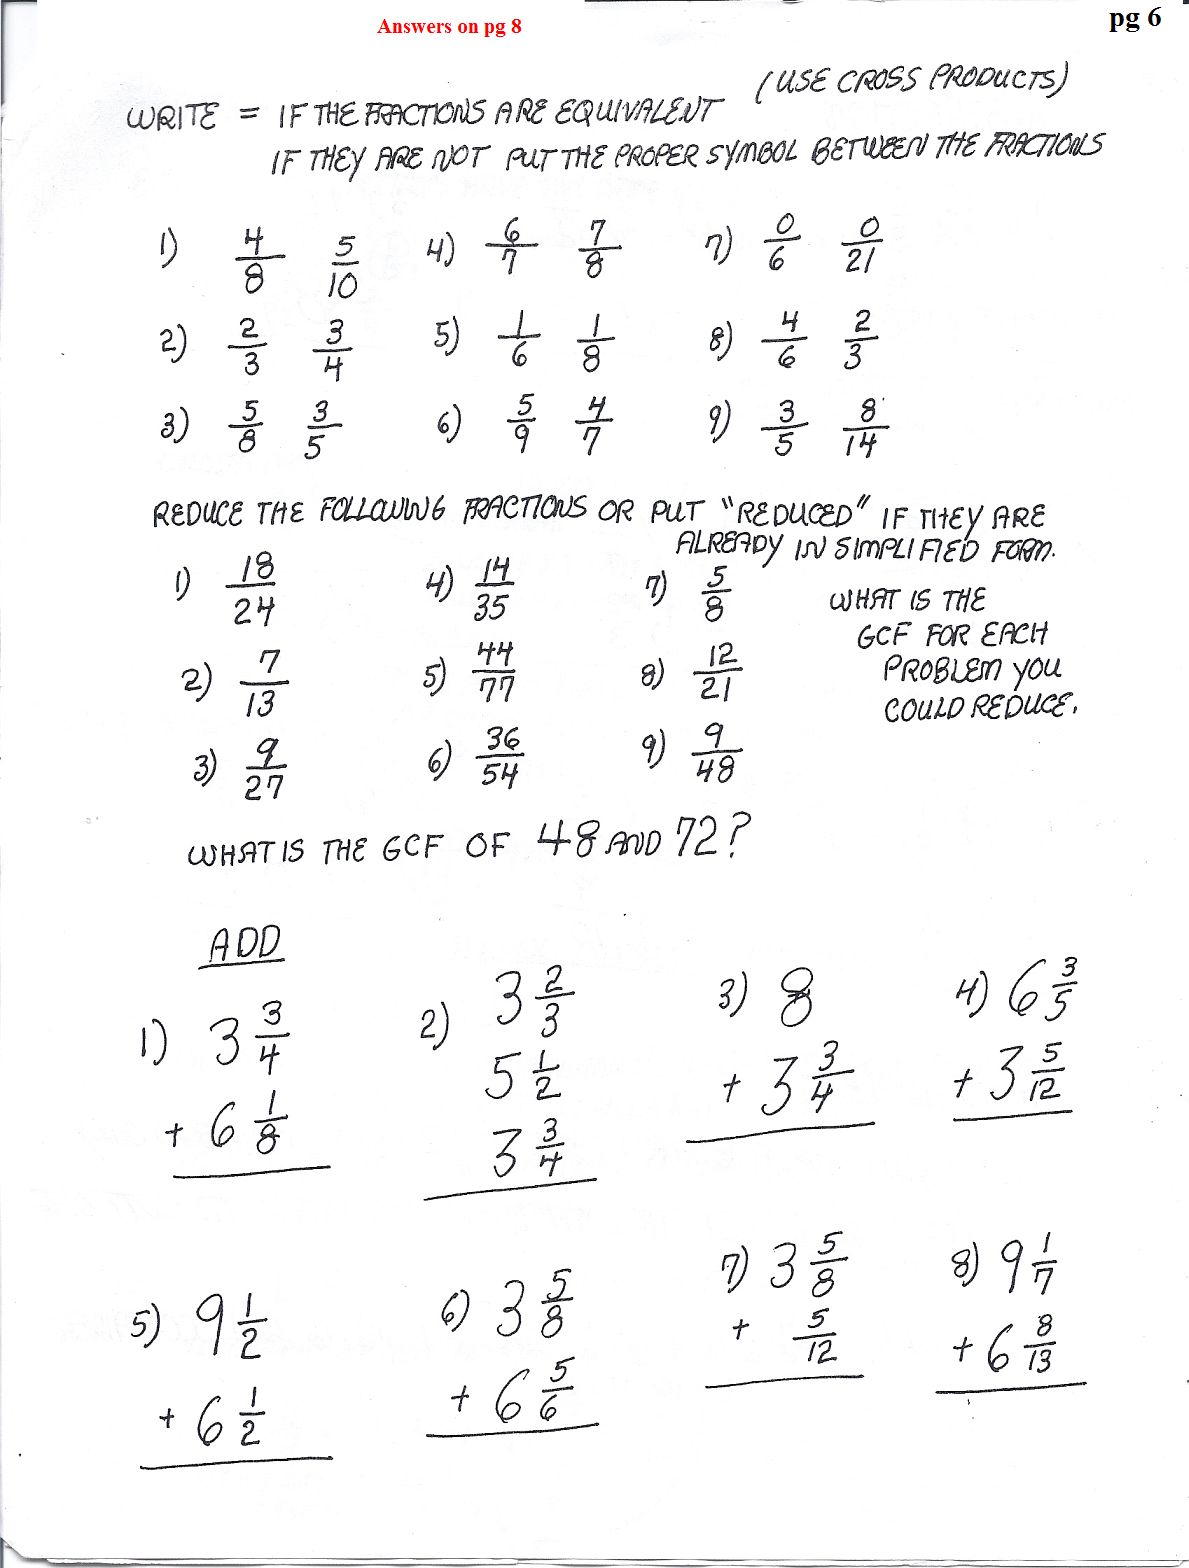 Answers on pg 8
pg 6
(USE CROSS PRODUCTS)
WRITE = IF THE FRACTIONS ARE EQUIVALENT
IF THEY ARE NOT PUT THE PROPER SYMBOL BETWEEN THE FRACTIONS
1) 4/8 5/10 4) 6/7 7/8 7) 0/6 0/21
2) 2/3 3/4 5) 1/6 1/8 8) 4/6 2/3
3) 5/8 3/5 6) 5/9 4/7 9) 3/5 8/14
REDUCE THE FOLLOWING FRACTIONS OR PUT "REDUCED" IF THEY ARE
ALREADY IN SIMPLIFIED FORM.
1) 18/24 4) 14/35 7) 5/8
2) 7/13 5) 44/77 8) 12/21
3) 9/27 6) 36/54 9) 9/48
WHAT IS THE
GCF FOR EACH
PROBLEM YOU
COULD REDUCE.
WHAT IS THE GCF OF 48 AND 72?
ADD
1) 3 3/4
+ 6 1/8
2) 3 2/3
5 1/2
3 3/4
3) 8
+ 3 3/4
4) 6 3/5
+ 3 5/12
5) 9 1/2
+ 6 1/2
6) 3 5/8
+ 6 5/6
7) 3 5/8
+ 5/12
8) 9 1/7
+ 6 8/13